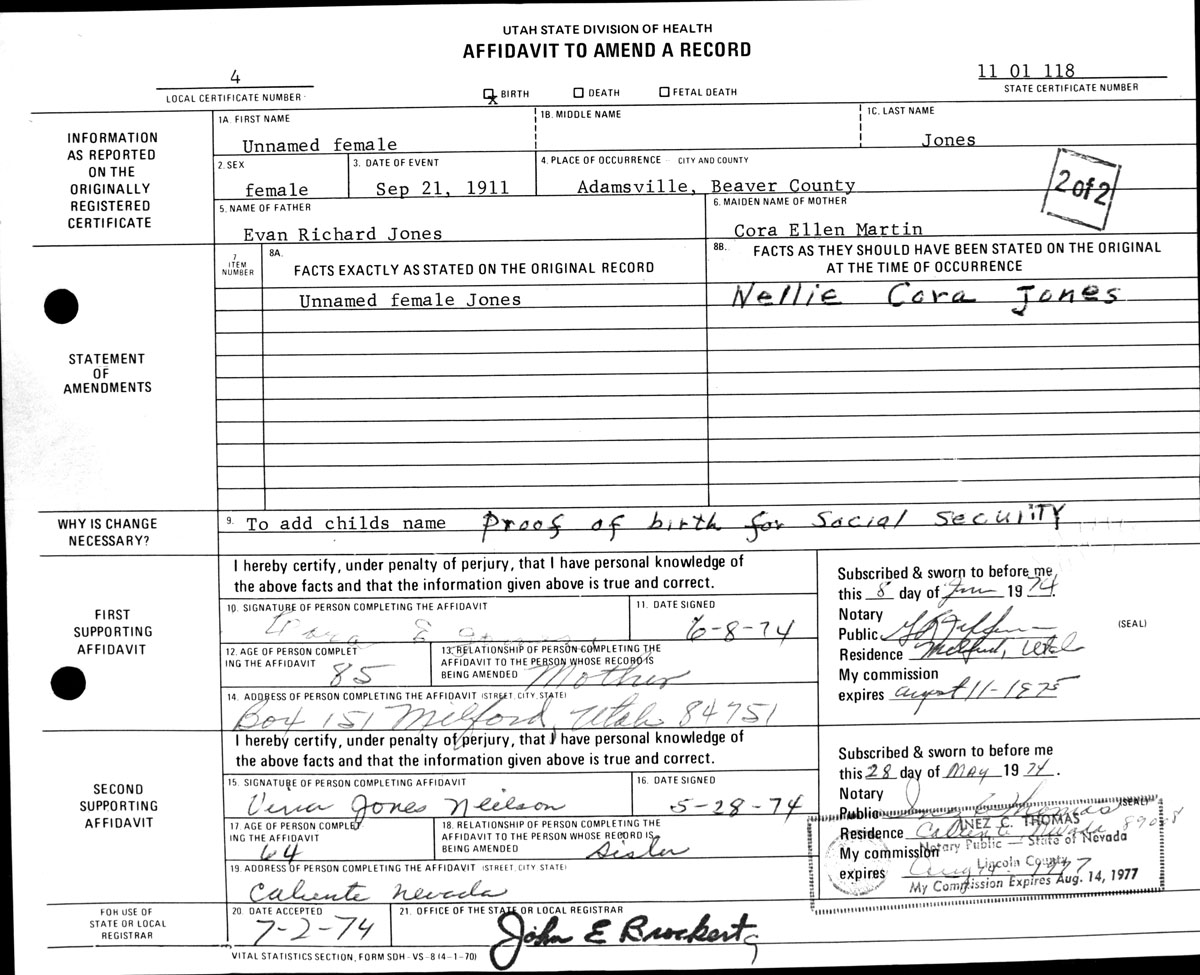 UTAH STATE DIVISION OF HEALTH
AFFIDAVIT TO AMEND A RECORD
4
LOCAL CERTIFICATE NUMBER
X BIRTH
DEATH
FETAL DEATH
11 01 118
STATE CERTIFICATE NUMBER
INFORMATION
AS REPORTED
ON THE
ORIGINALLY
REGISTERED
CERTIFICATE
1A. FIRST NAME
Unnamed female
1B. MIDDLE NAME
1C. LAST NAME
Jones
2. SEX
female
3. DATE OF EVENT
Sep 21, 1911
4. PLACE OF OCCURRENCE – CITY AND COUNTY
Adamsville, Beaver County
2 of 2
5. NAME OF FATHER
Evan Richard Jones
6. MAIDEN NAME OF MOTHER
Cora Ellen Martin
STATEMENT
OF
AMENDMENTS
7
ITEM
NUMBER
8A.
FACTS EXACTLY AS STATED ON THE ORIGINAL RECORD
8B.
FACTS AS THEY SHOULD HAVE BEEN STATED ON THE ORIGINAL
AT THE TIME OF OCCURRENCE
Unnamed female Jones
Nellie Cora Jones
WHY IS CHANGE
NECESSARY?
9. To add childs name Proof of birth for Social Security
FIRST
SUPPORTING
AFFIDAVIT
I hereby certify, under penalty of perjury, that I have personal knowledge of
the above facts and that the information given above is true and correct.
10. SIGNATURE OF PERSON COMPLETING THE AFFIDAVIT
Cora E Jones
11. DATE SIGNED
6-8-74
12. AGE OF PERSON COMPLET
ING THE AFFIDAVIT
85
13. RELATIONSHIP OF PERSON COMPLETING THE
AFFIDAVIT TO THE PERSON WHOSE RECORD IS
BEING AMENDED Mother
14. ADDRESS OF PERSON COMPLETING THE AFFIDAVIT (STREET, CITY, STATE)
Box 151 Milford, Utah 84751
Subscribed & sworn to before me
this 8 day of June 1974.
Notary
Public
(SEAL)
Residence Milford, Utah
My commission
expires August 11-1975
SECOND
SUPPORTING
AFFIDAVIT
I hereby certify, under penalty of perjury, that I have personal knowledge of
the above facts and that the information given above is true and correct.
15. SIGNATURE OF PERSON COMPLETING AFFIDAVIT
Verna Jones Neilson
16. DATE SIGNED
5-28-74
17. AGE OF PERSON COMPLET
ING THE AFFIDAVIT
64
18. RELATIONSHIP OF PERSON COMPLETING THE
AFFIDAVIT TO THE PERSON WHOSE RECORD IS
BEING AMENDED Sister
19. ADDRESS OF PERSON COMPLETING THE AFFIDAVIT (STREET, CITY, STATE)
Caliente Nevada
Subscribed & sworn to before me
this 28 day of May 1974.
Notary
Public Thomas (SEAL)
Residence Caliente Nevada
My commission
expires Aug 14 - 1977
INEZ C. THOMAS
Notary Public — State of Nevada
Lincoln County
My Commission Expires Aug. 14, 1977
FOR USE OF
STATE OR LOCAL
REGISTRAR
20. DATE ACCEPTED
7-2-74
21. OFFICE OF THE STATE OR LOCAL REGISTRAR
John E Brockert
VITAL STATISTICS SECTION, FORM SDH - VS - 8 (4-1-70)